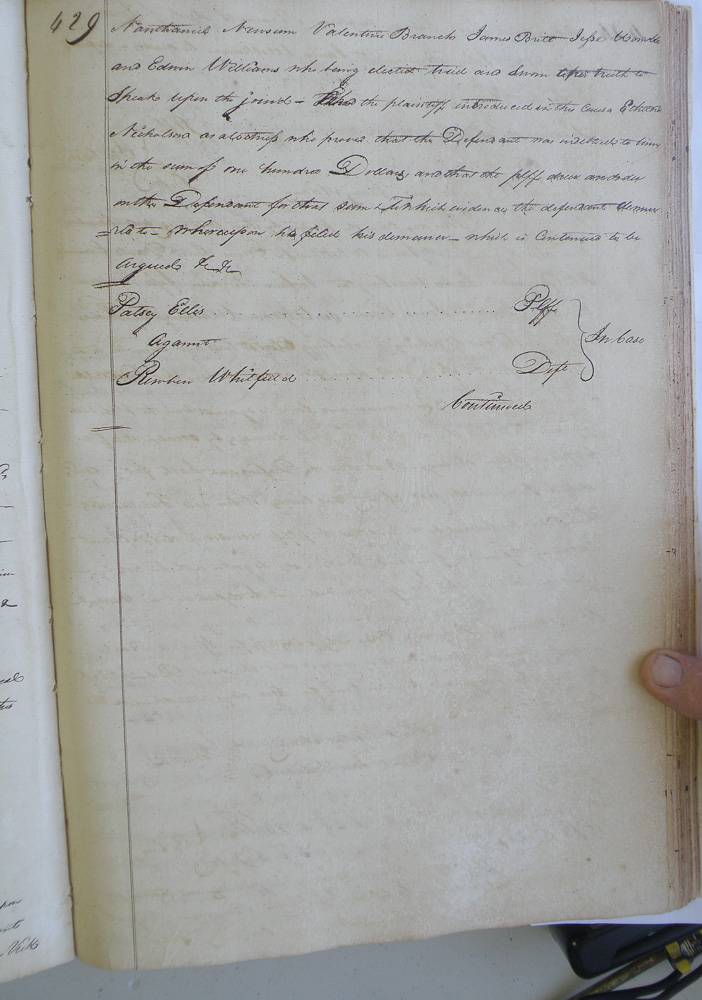 429
Nanthaniel Newsom Valentine Branch James Britt Jesse
and Edwin Williams who being elected tried and sworn the truth to
Speak upon the joined - the plaintiff introduced in this cause
Nicholson as a witness who proved that the Defendant was indebted to him
in the sum of one hundred Dollars, and that the plff drew an order
on the Defendant for that sum to which evidence the defendant demur
red to - Whereupon he filed his demurrer - which is Continued to be
argued &c &c
Patsey Ellis . . . . . Plff
against In Case
Reuben Whitfield . . . . . Deft
Continued